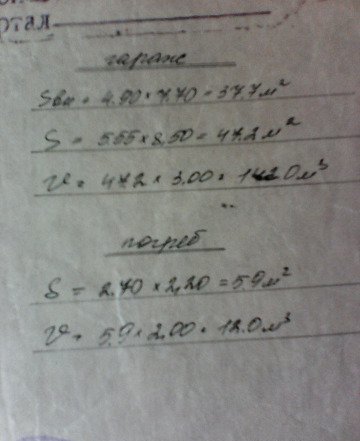 ртал
гараж
Sвн = 4.90 × 7.70 = 37.7 м²
S = 5.55 × 8.50 = 47.2 м²
V = 47.2 × 3.00 = 142.0 м³
погреб
S = 2.70 × 2,20 = 5.9 м²
V = 5.9 × 2,00 = 12.0 м³